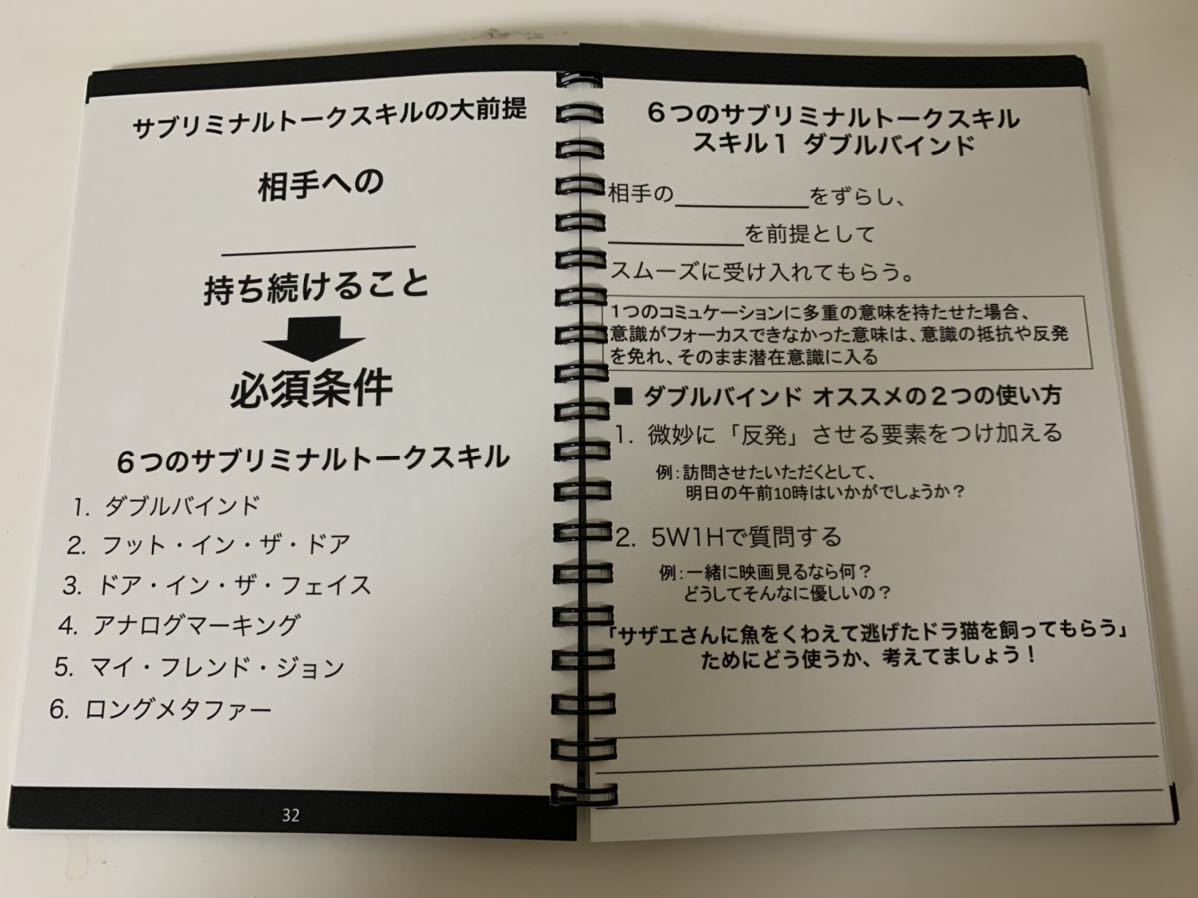 サブリミナルトークスキルの大前提
相手への
持ち続けること
必須条件
6つのサブリミナルトークスキル
1. ダブルバインド
2. フット・イン・ザ・ドア
3. ドア・イン・ザ・フェイス
4. アナログマーキング
5. マイ・フレンド・ジョン
6. ロングメタファー
32
6つのサブリミナルトークスキル
スキル1 ダブルバインド
相手の____________をずらし、
____________を前提として
スムーズに受け入れてもらう。
1つのコミュケーションに多重の意味を持たせた場合、
意識がフォーカスできなかった意味は、意識の抵抗や反発
を免れ、そのまま潜在意識に入る
■ ダブルバインド オススメの2つの使い方
1. 微妙に「反発」させる要素をつけ加える
例：訪問させたいただくとして、
明日の午前10時はいかがでしょうか？
2. 5W1Hで質問する
例：一緒に映画見るなら何？
どうしてそんなに優しいの？
「サザエさんに魚をくわえて逃げたドラ猫を飼ってもらう」
ためにどう使うか、考えてましょう！